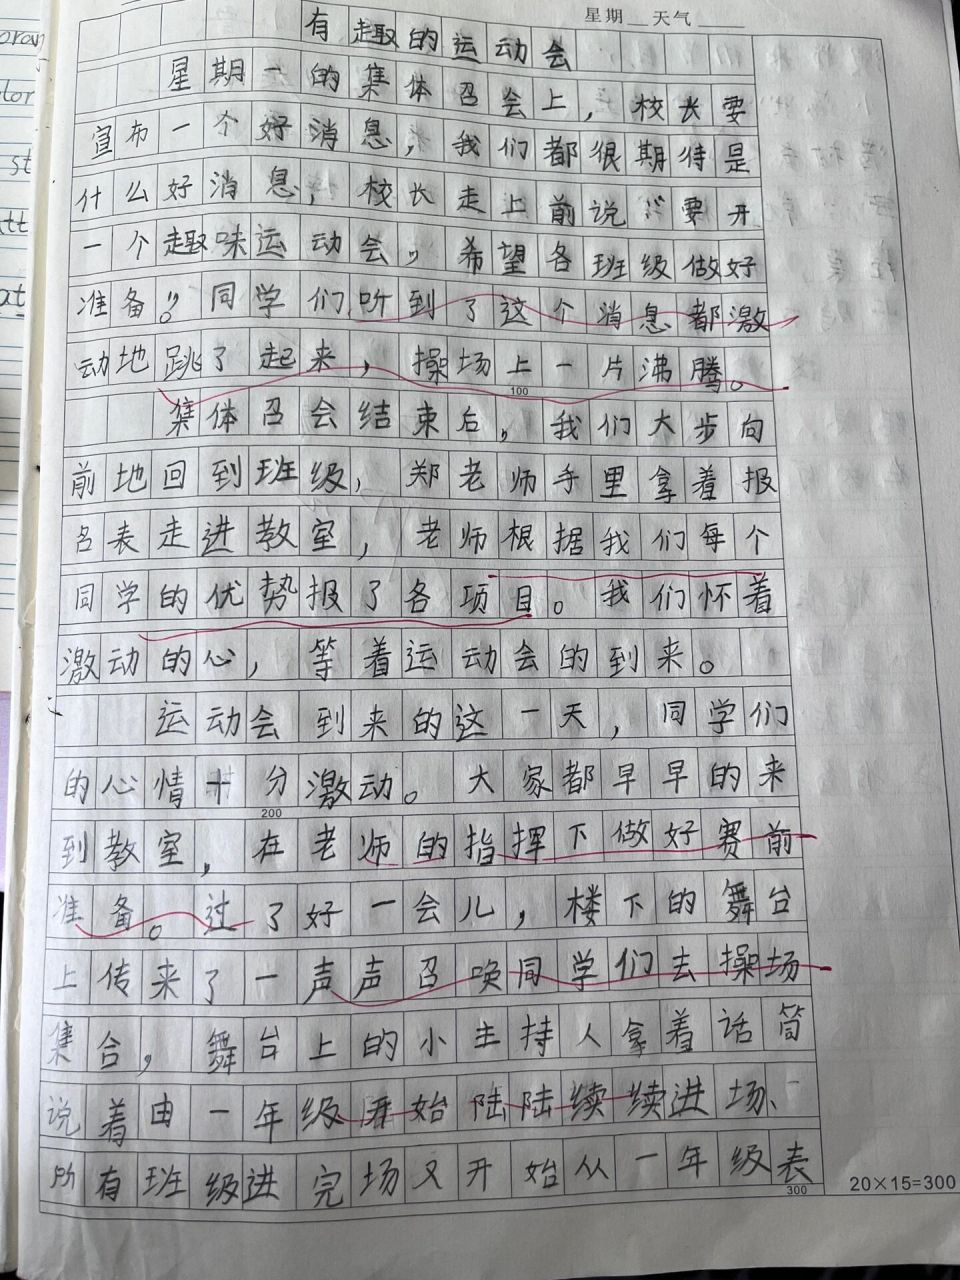 星期 天气
有趣的运动会
星期一的集体召会上，校长要
宣布一个好消息，我们都很期待是
什么好消息，校长走上前说：“要开
一个趣味运动会，希望各班级做好
准备。”同学们听到了这个消息都激
动地跳了起来，操场上一片沸腾。
100
集体召会结束后，我们大步向
前地回到班级，郑老师手里拿着报
名表走进教室，老师根据我们每个
同学的优势报了各项目。我们怀着
激动的心，等着运动会的到来。
运动会到来的这一天，同学们
的心情十分激动。大家都早早的来
200
到教室，在老师的指挥下做好赛前
准备。过了好一会儿，楼下的舞台
上传来了一声声召唤同学们去操场
集合，舞台上的小主持人拿着话筒
说着由一年级开始陆陆续续进场、
所有班级进完场又开始从一年级表
300
20×15=300